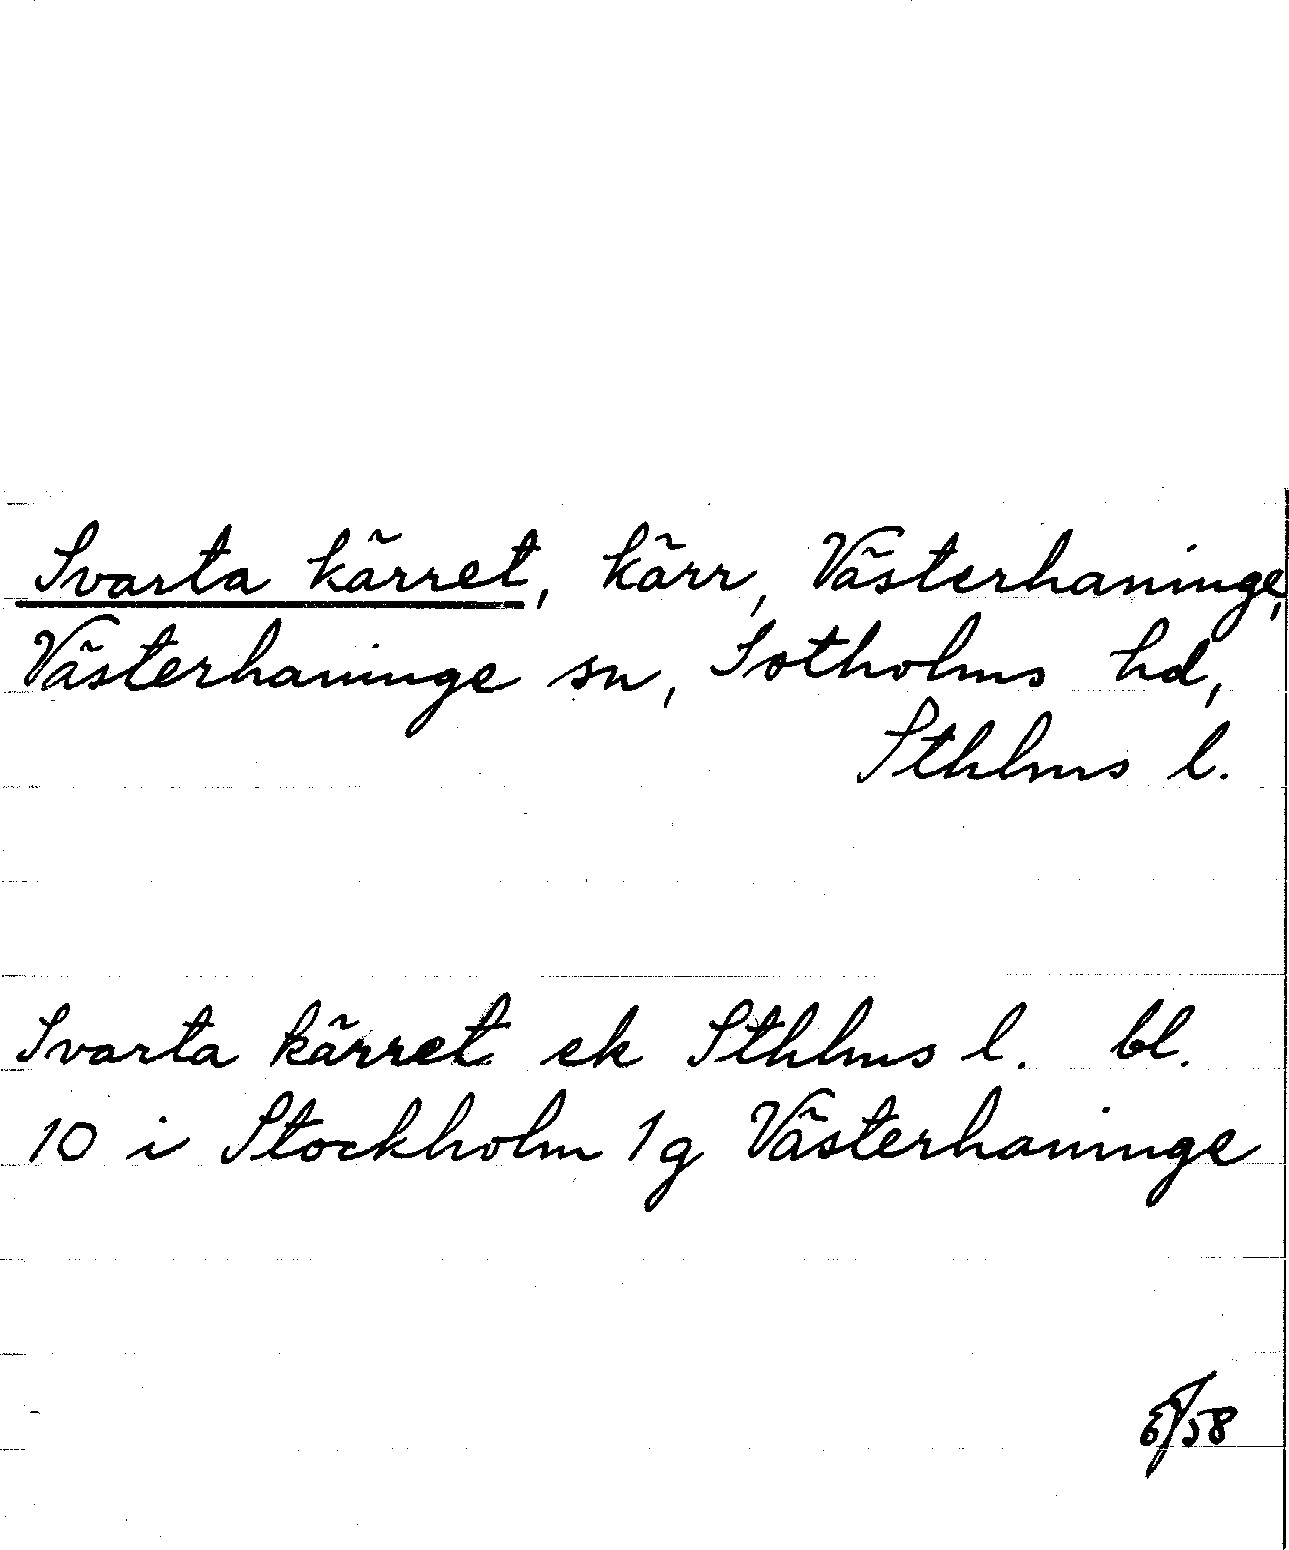 Svarta kärret, kärr, Västerhaninge,
Västerhaninge sn, Sotholms hd,
Sthlms l.
Svarta kärret ek Sthlms l. bl.
10 i Stockholm 1g Västerhaninge